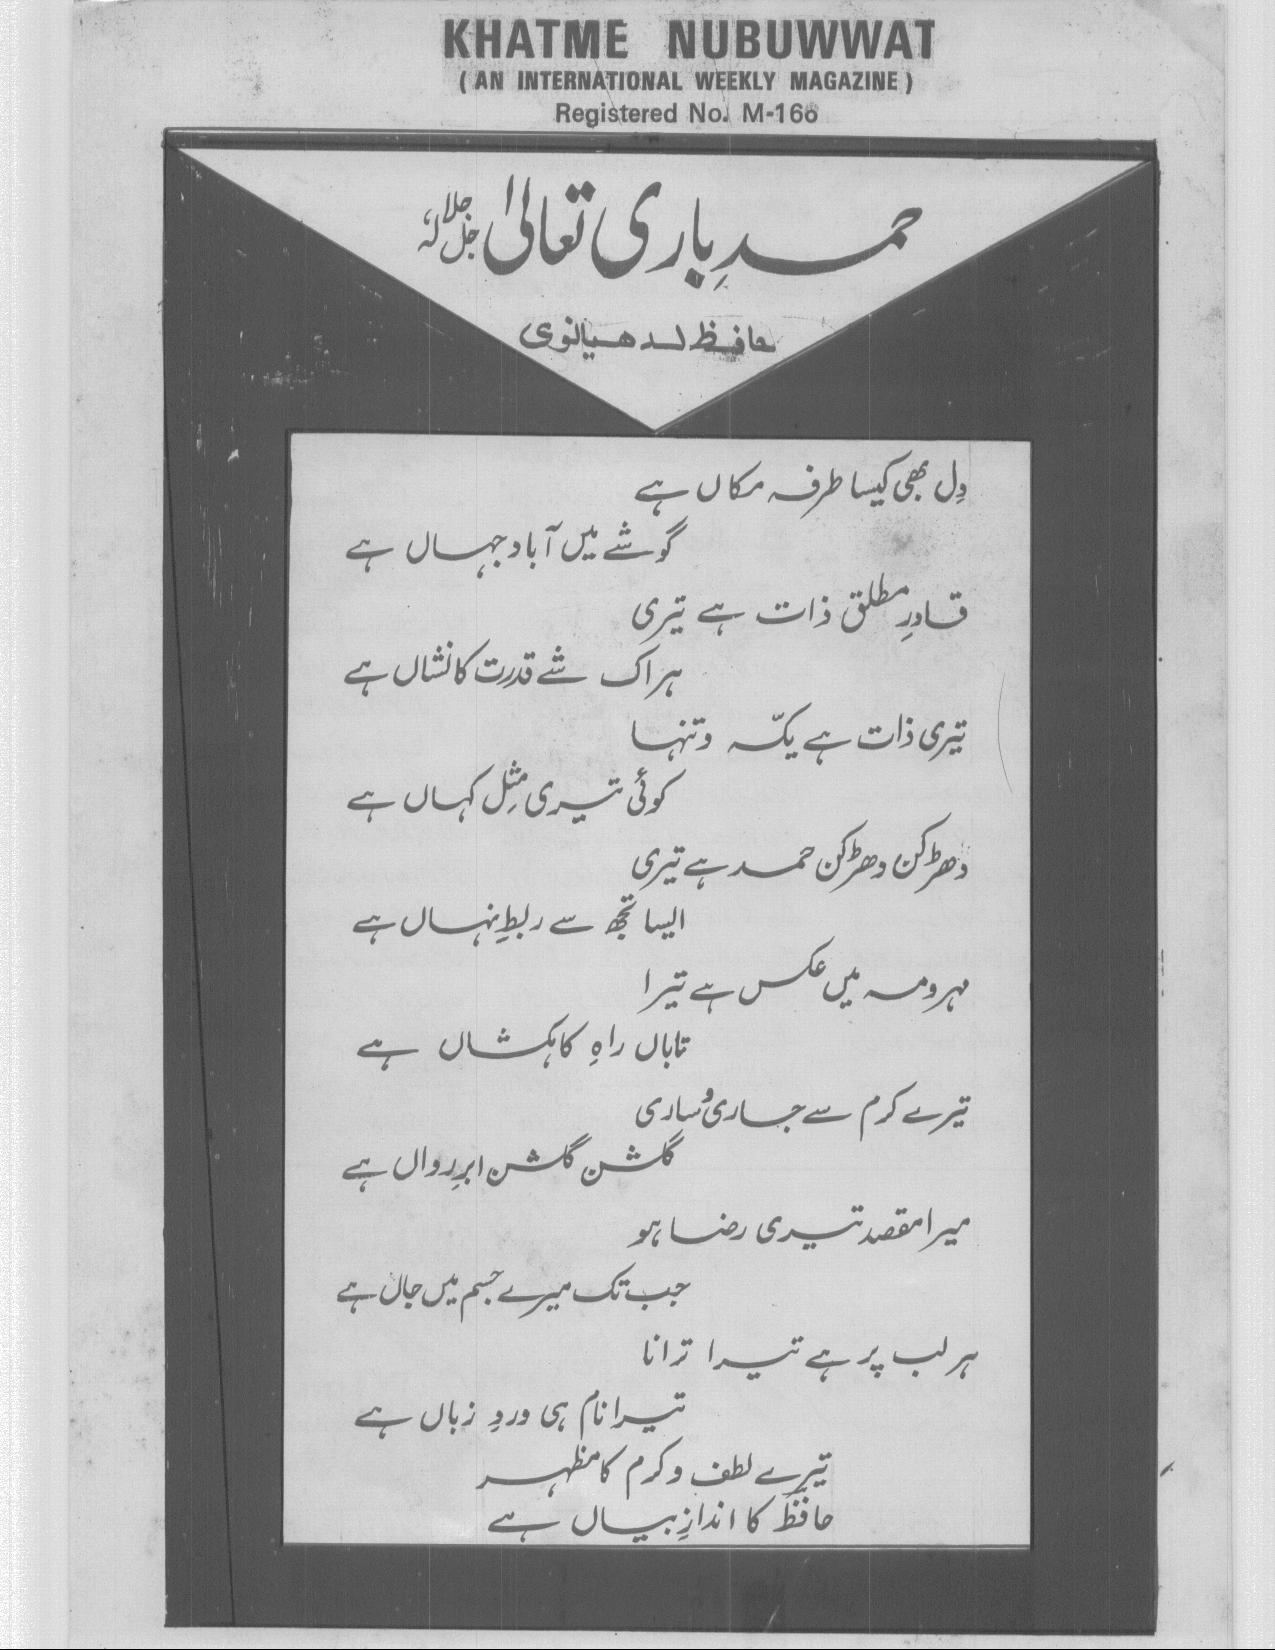 KHATME NUBUWWAT
( AN INTERNATIONAL WEEKLY MAGAZINE )
Registered No. M-160
حمدِ باری تعالیٰ جل جلالہٗ
حافظ لدھیانوی
دِل بھی کیسا طرفہ مکاں ہے
گوشے میں آباد جہاں ہے
قادرِ مطلق ذات ہے تیری
ہر اک شے قدرت کا نشاں ہے
تیری ذات ہے یکّہ و تنہا
کوئی تیری مثِل کہاں ہے
دھڑکن دھڑکن حمد ہے تیری
ایسا تجھ سے ربطِ نہاں ہے
مہر و مہ میں عکس ہے تیرا
تاباں راہِ کاہکشاں ہے
تیرے کرم سے جاری و ساری
گلشن گلشن ابرِ رواں ہے
میرا مقصد تیری رضا ہو
جب تک میرے جسم میں جاں ہے
ہر لب پر ہے تیرا ترانا
تیرا نام ہی وردِ زباں ہے
تیرے لطف و کرم کا مظہر
حافظؔ کا اندازِ بیاں ہے